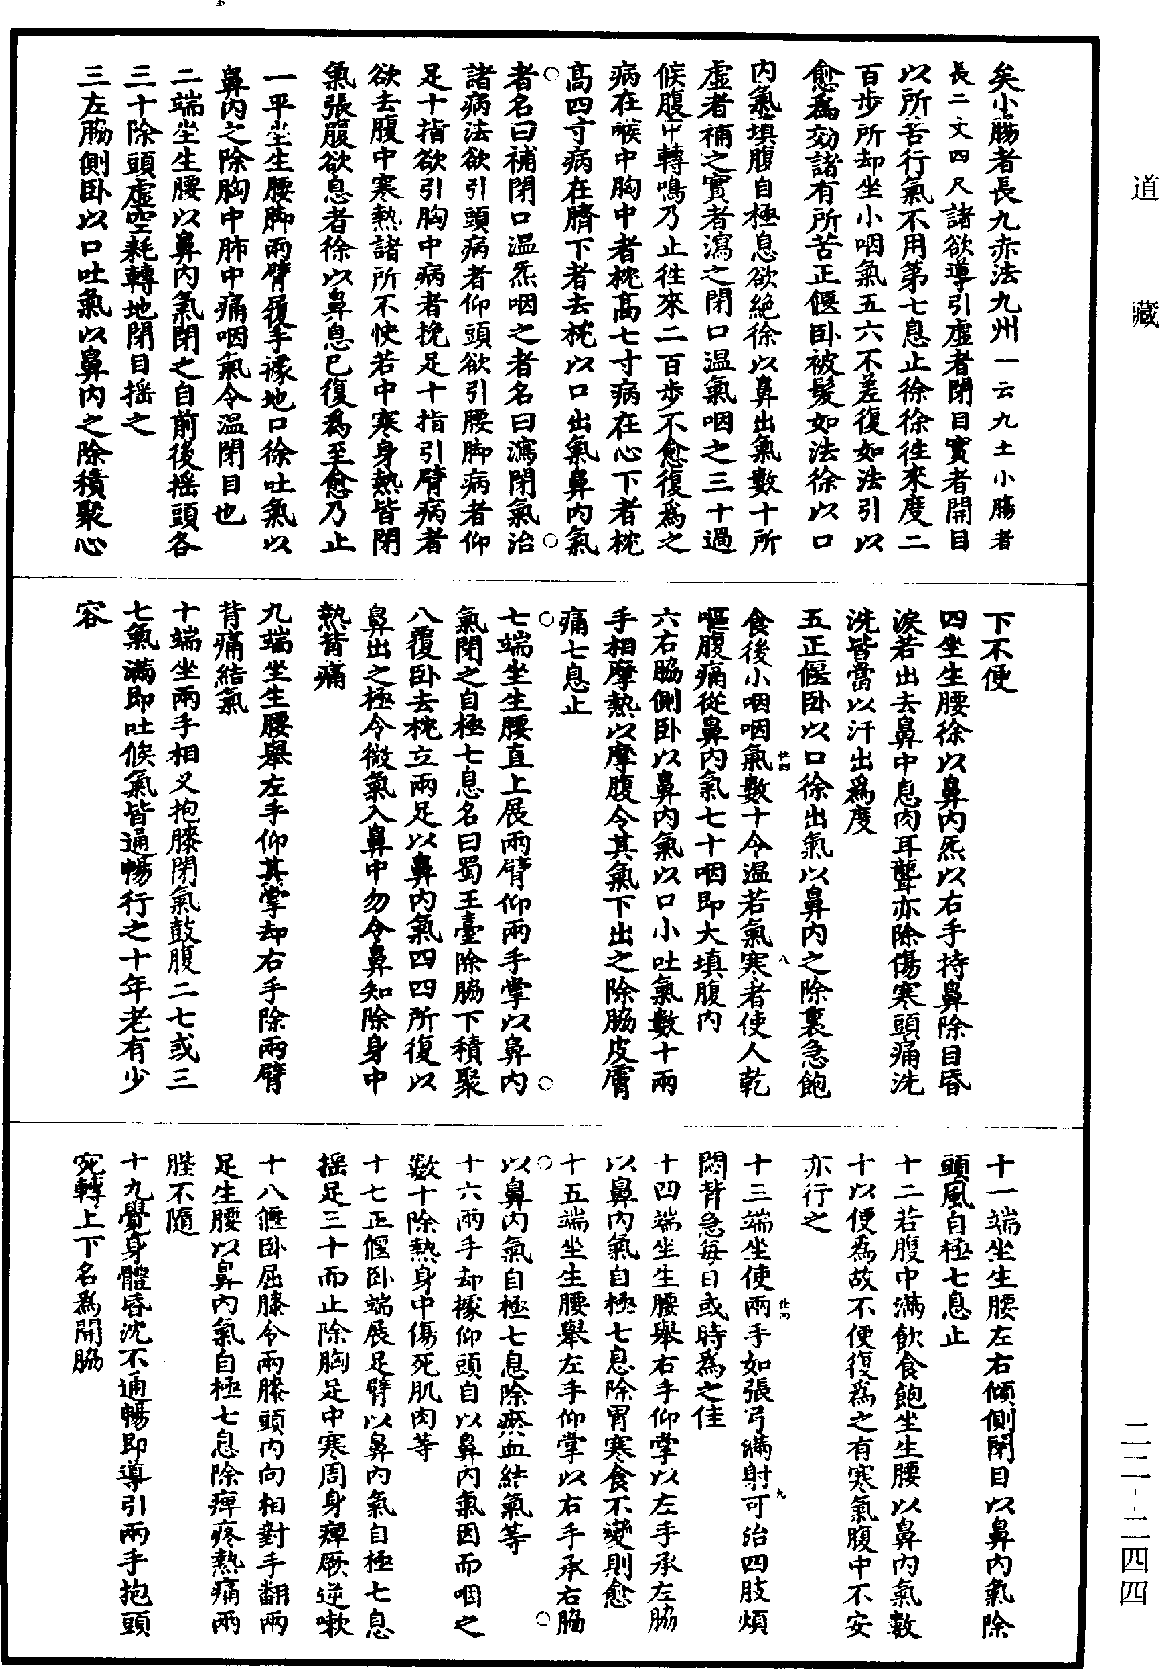 道藏
矣小腸者長九赤法九州一云九土小腸者
長二文四尺諸欲導引虛者閉目實者開目
以所苦行氣不用第七息止徐徐往來度二
百步所却坐小咽氣五六不差復如法引以
愈為効諸有所苦正偃卧被髮如法徐以口
內氣填腹自極息欲絶徐以鼻出氣數十所
虛者補之實者瀉之閉口溫氣咽之三十過
候腹中轉鳴乃止往來二百步不愈復為之
病在喉中胸中者枕高七寸病在心下者枕
高四寸病在臍下者去枕以口出氣鼻內氣
者名曰補閉口溫炁咽之者名曰瀉閉氣治
諸病法欲引頭病者仰頭欲引腰脚病者仰
足十指欲引胸中病者挽足十指引臂病者
欲去腹中寒熱諸所不快若中寒身熱皆閉
氣張腹欲息者徐以鼻息已復為至愈乃止
一平坐生腰脚兩臂覆手據地口徐吐氣以
鼻內之除胸中肺中痛咽氣令溫閉目也
二端坐生腰以鼻內氣閉之自前後搖頭各
三十除頭虛空耗轉地閉目搖之
三左脇側卧以口吐氣以鼻內之除積聚心
下不便
四坐生腰徐以鼻內炁以右手持鼻除目昏
淚若出去鼻中息肉耳聾亦除傷寒頭痛洗
洗皆當以汗出為度
五正偃卧以口徐出氣以鼻內之除裏急飽
食後小咽咽氣數十令溫若氣寒者使人乾
嘔腹痛從鼻內氣七十咽即大填腹內
六右脇側卧以鼻內氣以口小吐氣數十兩
手相摩熱以摩腹令其氣下出之除脇皮膚
痛七息止
七端坐生腰直上展兩臂仰兩手掌以鼻內
氣閉之自極七息名曰蜀王臺除脇下積聚
八覆卧去枕立兩足以鼻內氣四四所復以
鼻出之極令微氣入鼻中勿令鼻知除身中
熱背痛
九端坐生腰舉左手仰其掌却右手除兩臂
背痛結氣
十端坐兩手相叉抱膝閉氣鼓腹二七或三
七氣滿即吐候氣皆通暢行之十年老有少
容
十一端坐生腰左右傾側閉目以鼻內氣除
頭風自極七息止
十二若腹中滿飲食飽坐生腰以鼻內氣數
十以便為故不便復為之有寒氣腹中不安
亦行之
十三端坐使兩手如張弓滿射可治四肢煩
悶背急每日或時為之佳
十四端坐生腰舉右手仰掌以左手承左脇
以鼻內氣自極七息除胃寒食不變則愈
十五端坐生腰舉左手仰掌以右手承右脇
以鼻內氣自極七息除瘀血結氣等
十六兩手却據仰頭自以鼻內氣因而咽之
數十除熱身中傷死肌肉等
十七正偃卧端展足臂以鼻內氣自極七息
搖足三十而止除胸足中寒周身痺厥逆嗽
十八偃卧屈膝令兩膝頭內向相對手翻兩
足生腰以鼻內氣自極七息除痺疼熱痛兩
脛不隨
十九覺身體昏沈不通暢即導引兩手抱頭
宛轉上下名為開脇
二二-二四四